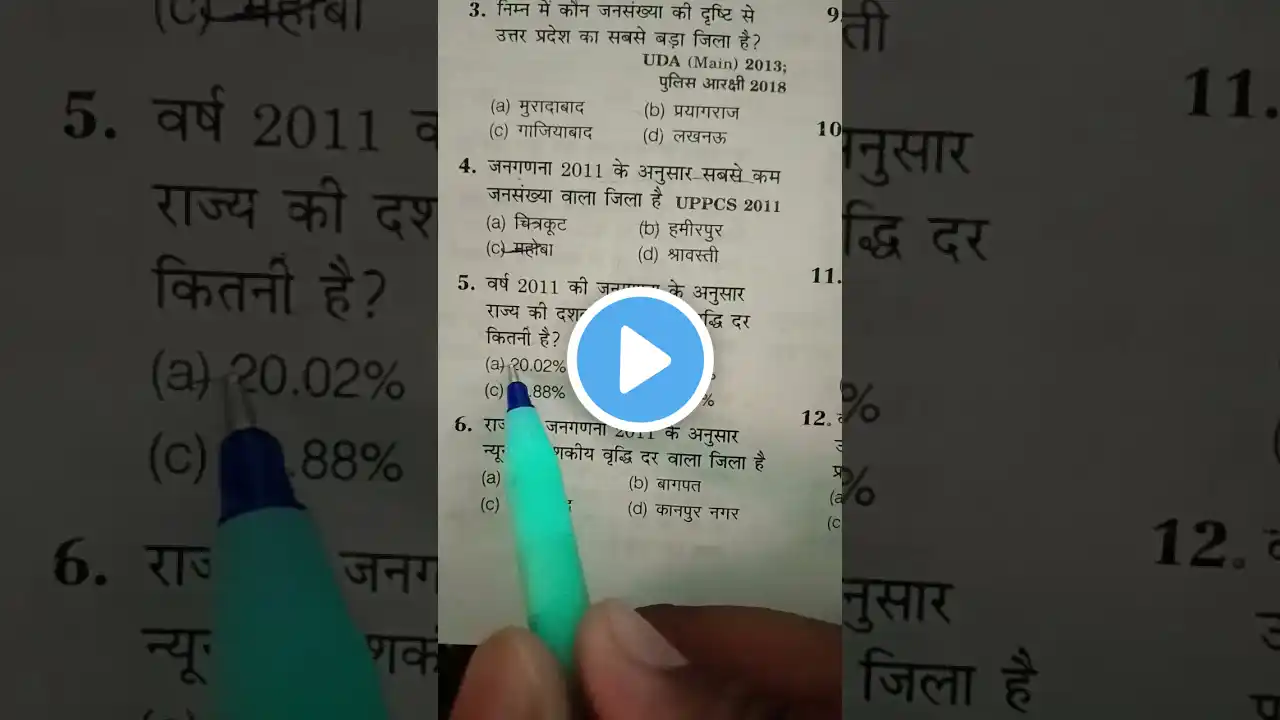 3. निम्न में कौन जनसंख्या की दृष्टि से
उत्तर प्रदेश का सबसे बड़ा जिला है?
UDA (Main) 2013;
पुलिस आरक्षी 2018
(a) मुरादाबाद (b) प्रयागराज
(c) गाजियाबाद (d) लखनऊ
4. जनगणना 2011 के अनुसार सबसे कम
जनसंख्या वाला जिला है UPPCS 2011
(a) चित्रकूट (b) हमीरपुर
(c) महोबा (d) श्रावस्ती
5. वर्ष 2011 की के अनुसार
राज्य की दर
कितनी है?
(a) 20.02%
(c) .88% %
6. जनगणना 2011 के अनुसार
वृद्धि दर वाला जिला है
(a) (b) बागपत
(c) (d) कानपुर नगर
9.
10
11.
12.
(a)
(c